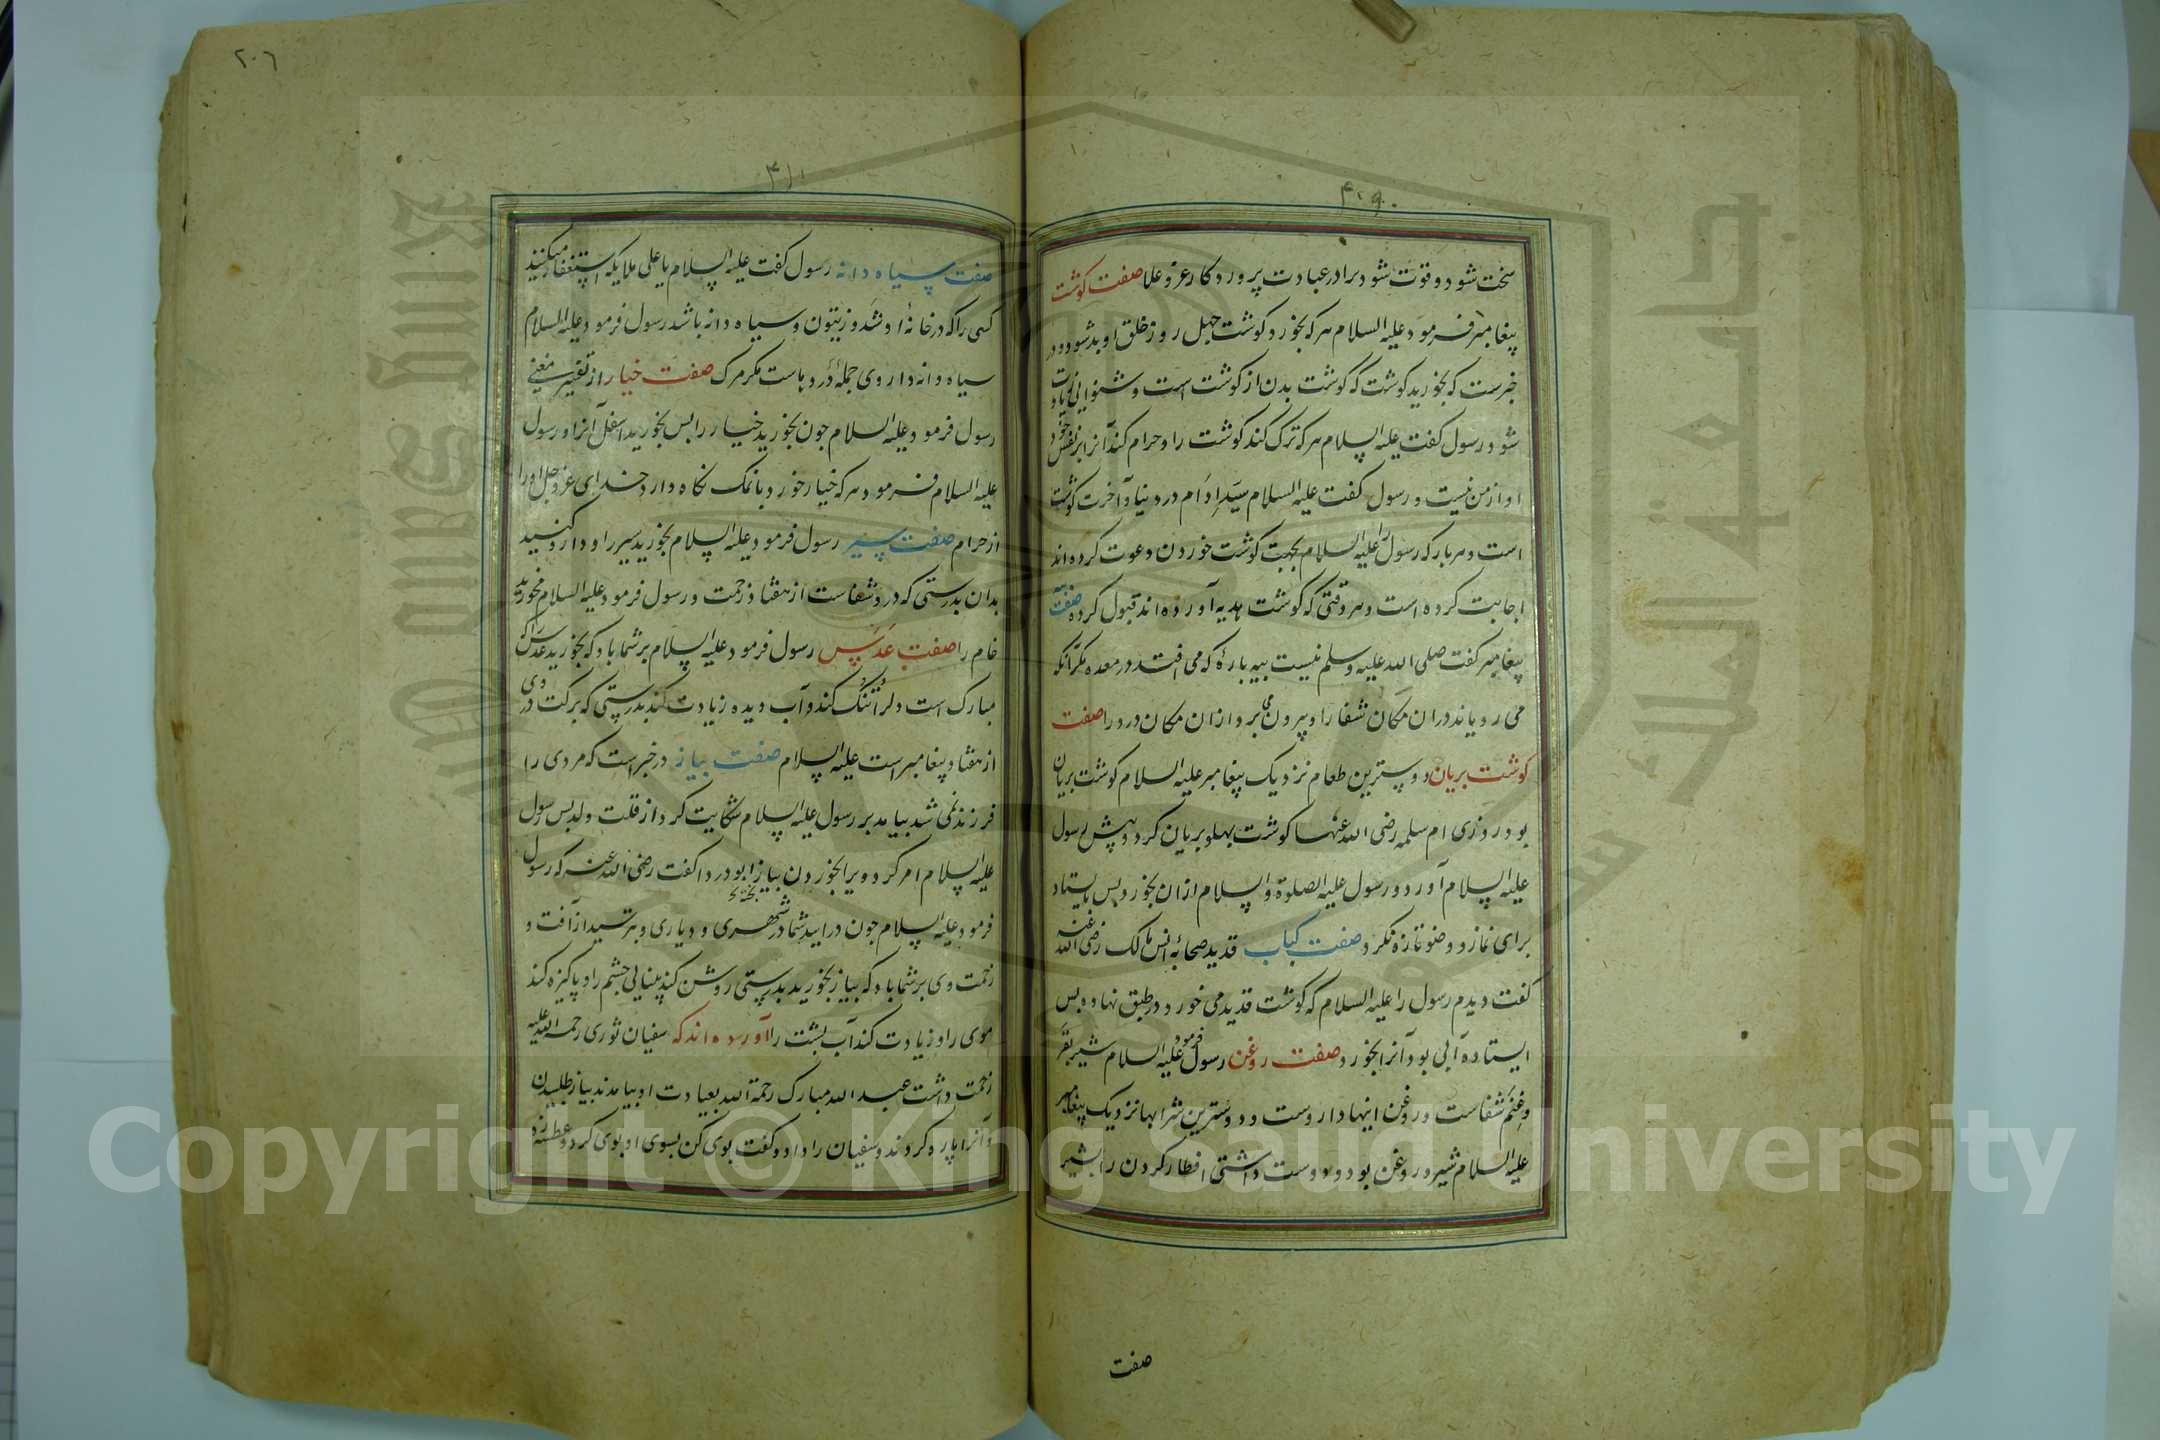 ۴۰۹
سخت شود و قوت شود برا در عبادت پروردکار عز و علا صفت کوشت
پیغامبر فرمود علیه السلام هر که بخورد کوشت جهل روز خلق او بد شود و در
خبرست که بخورید کوشت که کوشت بدن از کوشت است و شنوایی زیادت
شود رسول کفت علیه السلام هر که ترک کند کوشت را و حرام کند آنرا بر نفس خود
او از من نیست و رسول کفت علیه السلام سید ادام در دنیا و آخرت کوشت
است و هر بار که رسول را علیه السلام بجهت کوشت خوردن دعوت کرده اند
اجابت کرده است و هر وقتی که کوشت هدیه آورده اند قبول کرده صفت
پیغامبر کفت صلی الله علیه وسلم نیست بیه باره که می افتد در معده مکر آنکه
می رویاند در ان مکان شفا را و بیرون می برد از ان مکان درد را صفت
کوشت بریان دوسترین طعام نزدیک پیغامبر علیه السلام کوشت بریان
بود روزی ام سلمه رضی الله عنها کوشت بهلو بریان کرد و پیش رسول
علیه السلام آورد و رسول علیه الصلوة والسلام از ان بخورد بس بایستاد
برای نماز و وضو تازه نکرد صفت کباب قدید صحابه انس مالک رضی الله عنه
کفت دیدم رسول را علیه السلام که کوشت قدید می خورد در طبق نهاده بس
ایستاده آبی بود آنرا بخورد صفت روغن رسول فرمود علیه السلام شیر بقر
و غنم شفاست و روغن اینها داروست و دوسترین شرابها نزدیک پیغامبر
علیه السلام شیر و روغن بود و دوست داشتی افطار کردن را بشیر
صفت
۲۰۶
۴۱۰
صفت سیاه دانه رسول کفت علیه السلام یا علی ملایکه استغفار میکنند
کسی را که در خانهٔ او شد و زیتون و سیاه دانه باشد رسول فرمود علیه السلام
سیاه دانه داروی جملهٔ درد هاست مکر مرک صفت خیار از تفسیر مغنی
رسول فرمود علیه السلام جون بخورید خیار را بس بخورید اسفل آنرا و رسول
علیه السلام فرمود هر که خیار خورد با نمک نکاه دارد خدای عز و جل او را
از حرام صفت سیر رسول فرمود علیه السلام بخورید سیر را و دارو کنید
بدان بدرستی که در و شفاست از هفتاد زحمت و رسول فرمود علیه السلام مخورید
خام را صفت عدس رسول فرمود علیه السلام بر شما باد که بخورید عدس را که
مبارک است و دلرا تنک کند و آب دیده زیادت کند بدرستی که برکت در وی
از هفتاد پیغامبر است علیه السلام صفت بیاز در خبر است که مردی را
فرزند نمی شد بیامد بر رسول علیه السلام شکایت کرد از قلت ولد بس رسول
علیه السلام امر کرد ویرا بخوردن بیاز ابو دردا کفت رضی الله عنه که رسول
فرمود علیه السلام جون درایید شما در شهری و دیاری و بترسید از آفت و
زحمت وی بر شما باد که بیاز بخورید بدرستی روشن کند بینایی جشم را و پاکیزه کند
موی را و زیادت کند آب بشت را آورده اند که سفیان ثوری رحمة الله علیه
زحمت داشت عبد الله مبارک رحمة الله بعیادت او بیامدند بیاز طلبیدن
و آنرا پاره کردند و سفیان را داد و کفت بوی کن بسوی او بوی کرد و عطسه زد
Copyright © King Saud University
King Saud University
جامعة الملك سعود